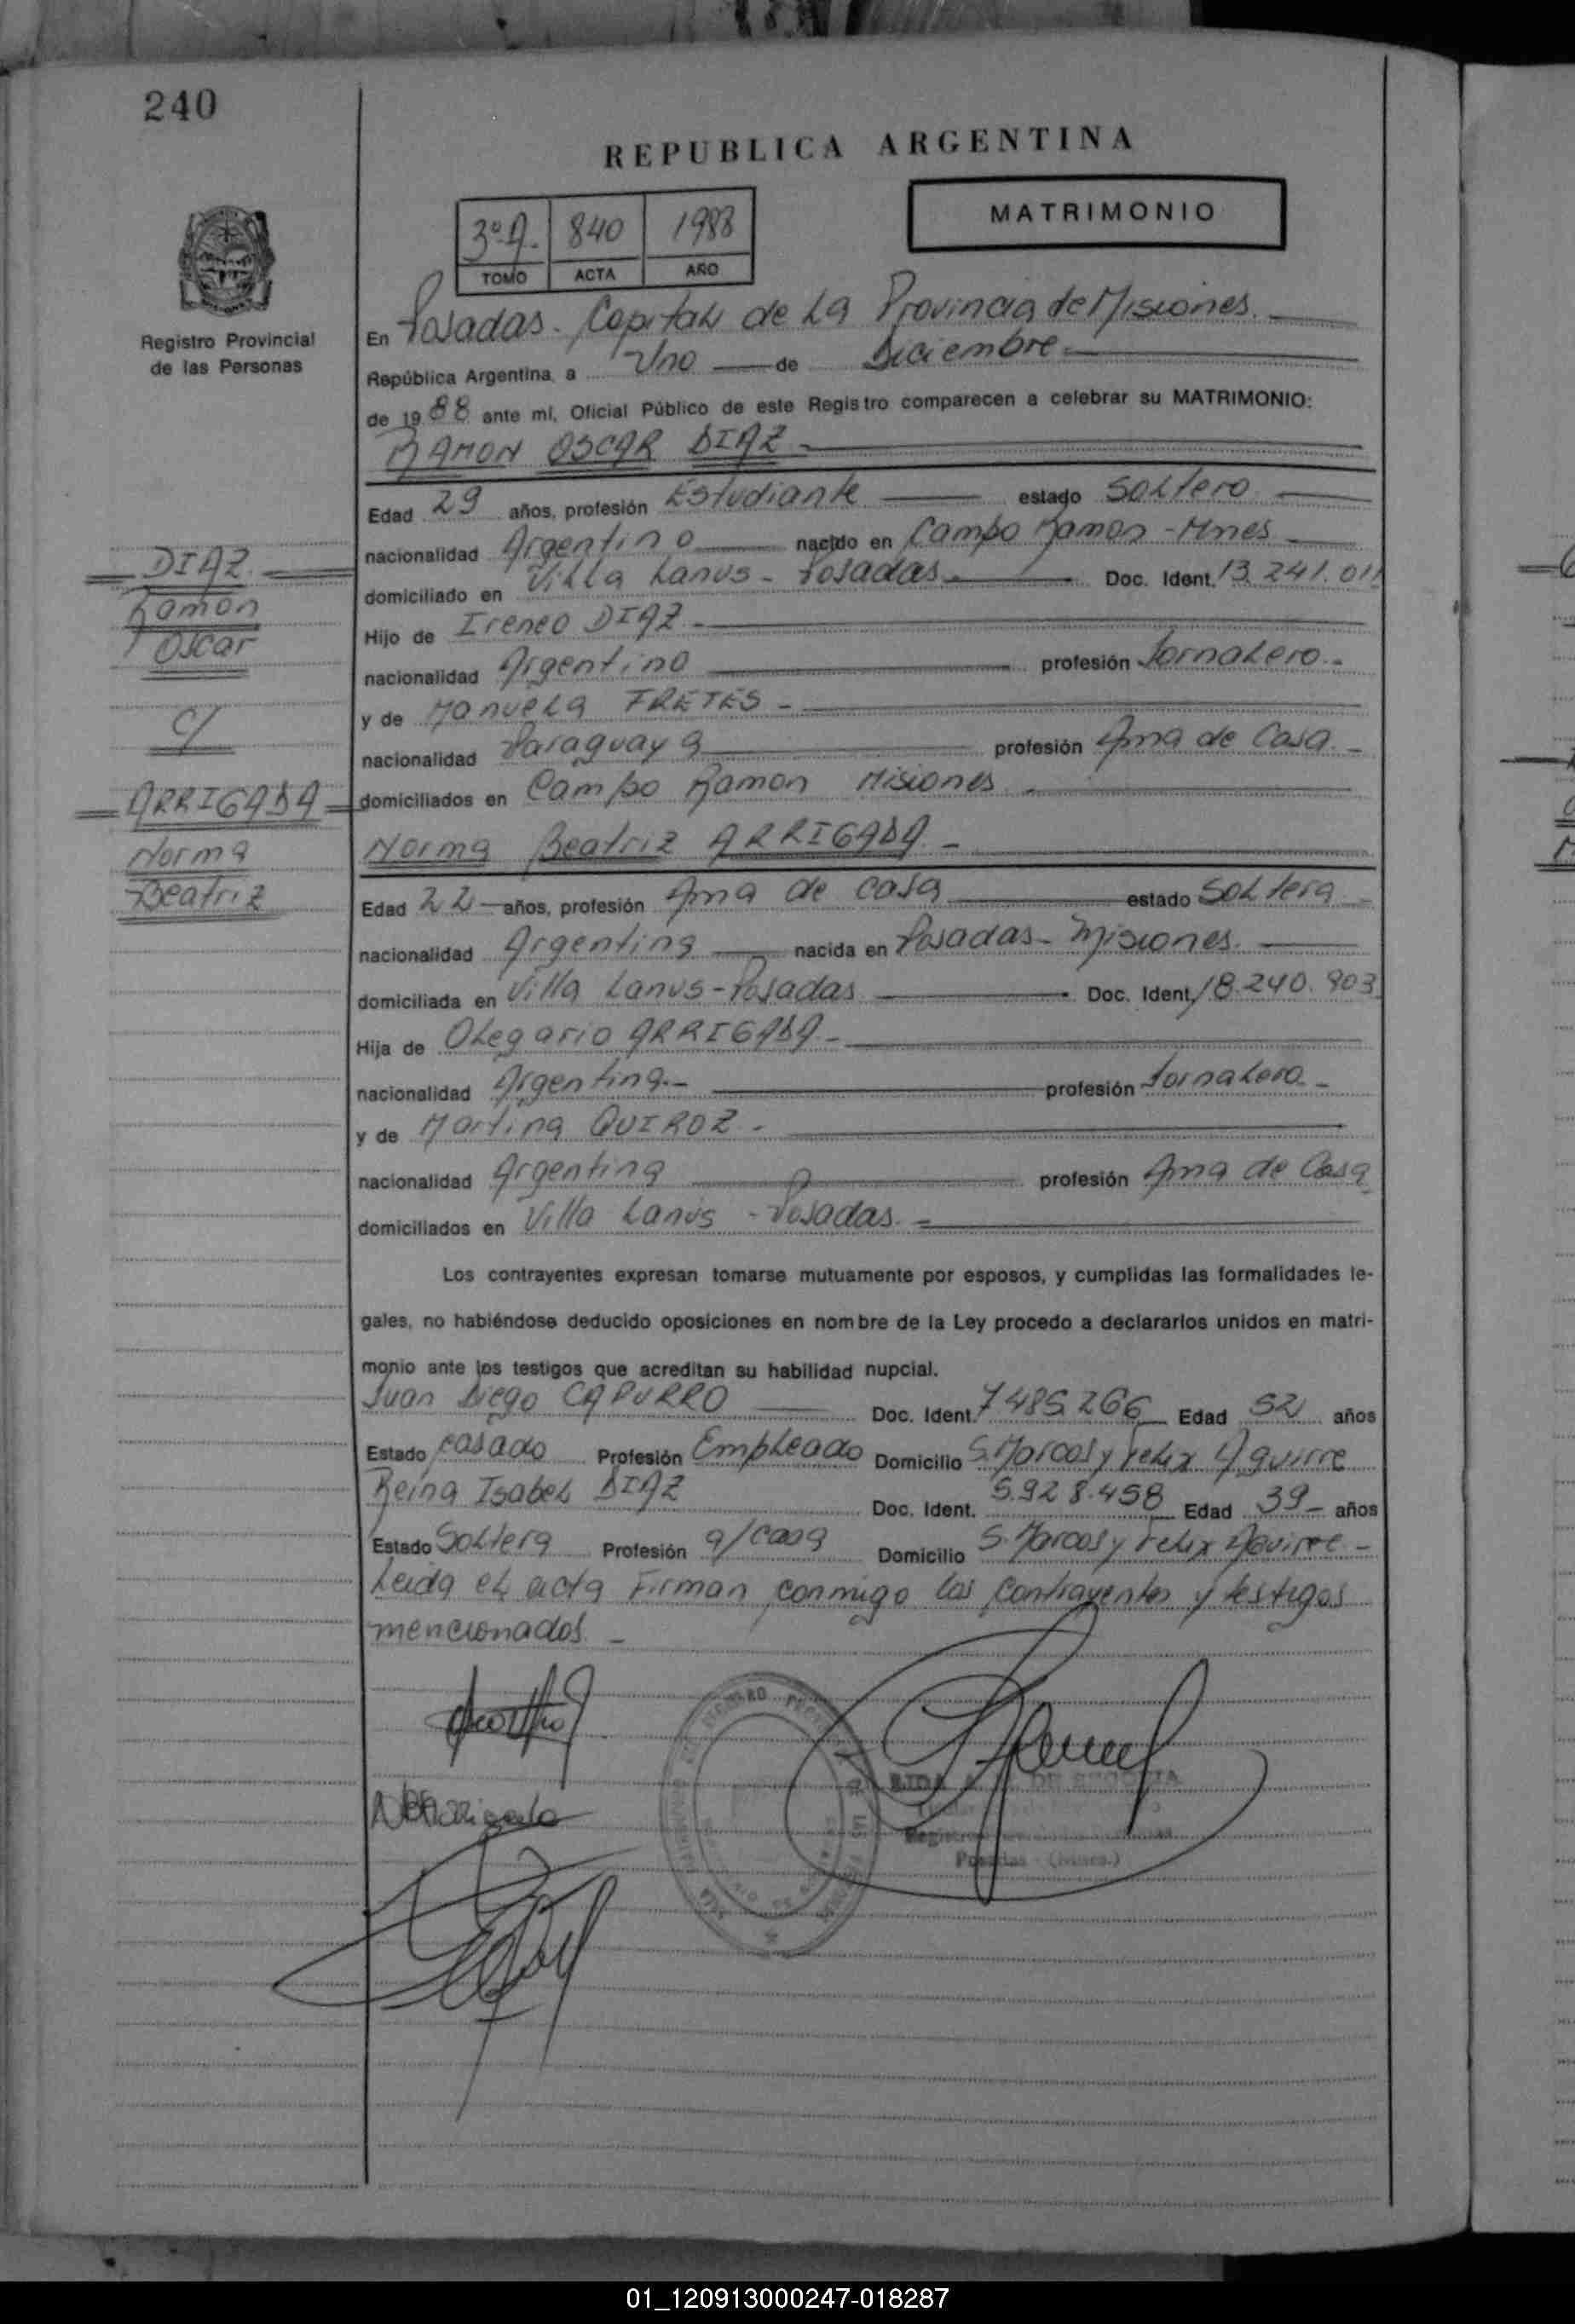 240
REPUBLICA ARGENTINA
MATRIMONIO
3º A. 840 1988
TOMO ACTA AÑO
Registro Provincial
de las Personas
En Posadas. Capital de La Provincia de Misiones.
República Argentina, a Uno de Diciembre
de 1988 ante mí, Oficial Público de este Registro comparecen a celebrar su MATRIMONIO:
RAMON OSCAR DIAZ
Edad 29 años, profesión Estudiante estado Soltero
nacionalidad Argentino nacido en Campo Ramon - Mnes
domiciliado en Villa Lanus - Posadas Doc. Ident. 13.241.011
Hijo de Ireneo DIAZ
nacionalidad Argentino profesión Jornalero
y de Manuela FRETES
nacionalidad Paraguaya profesión Ama de Casa
domiciliados en Campo Ramon Misiones
Norma Beatriz ARRIGADA
Edad 22 años, profesión Ama de casa estado Soltera
nacionalidad Argentina nacida en Posadas - Misiones
domiciliada en Villa Lanus - Posadas Doc. Ident. 18.240.903
Hija de Olegario ARRIGADA
nacionalidad Argentina profesión Jornalero
y de Martina QUIROZ
nacionalidad Argentina profesión Ama de Casa
domiciliados en Villa Lanús - Posadas
DIAZ
Ramon
Oscar
C/
ARRIGADA
Norma
Beatriz
Los contrayentes expresan tomarse mutuamente por esposos, y cumplidas las formalidades le-
gales, no habiéndose deducido oposiciones en nombre de la Ley procedo a declararlos unidos en matri-
monio ante los testigos que acreditan su habilidad nupcial.
Juan Diego CAPURRO Doc. Ident. 7485.266 Edad 52 años
Estado casado Profesión Empleado Domicilio S. Marcos y Felix Aguirre
Reina Isabel DIAZ Doc. Ident. 5.928.458 Edad 39 años
Estado Soltera Profesión a/casa Domicilio S. Marcos y Felix Aguirre
Leida el acta Firman conmigo los contrayentes y testigos
mencionados.
01_120913000247-018287